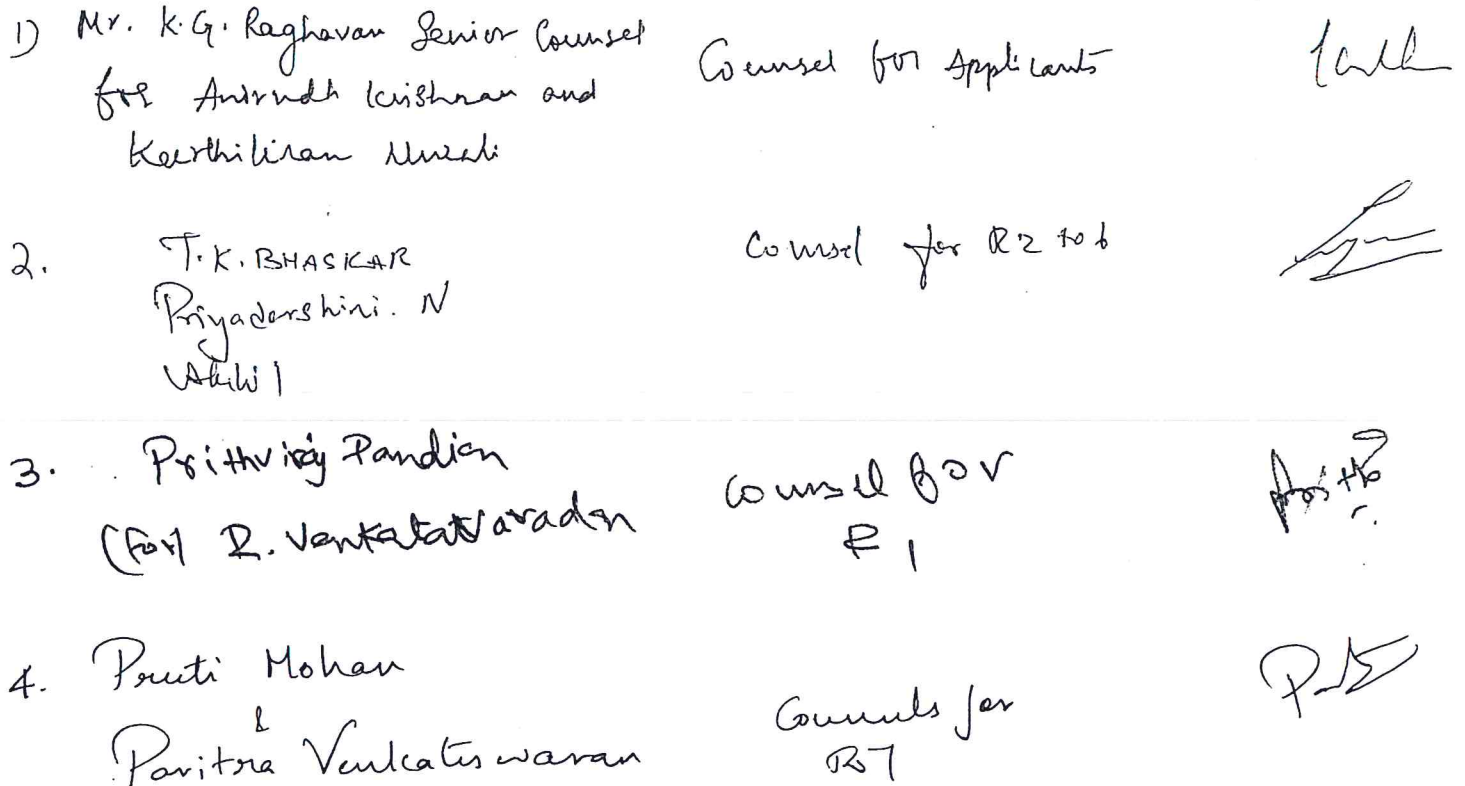 1) Mr. K.G. Raghavan Senior Counsel
for Anirudh Krishnan and
Keerthikiran Murali
Counsel for Applicants
2. T.K. BHASKAR
Priyadarshini. N
Counsel for R2 to 6
3. Prithviraj Pandian
(For) R. Venkatavaradan
Counsel for
R1
4. Preeti Mohan
&
Pavitra Venkateswaran
Counsels for
R7